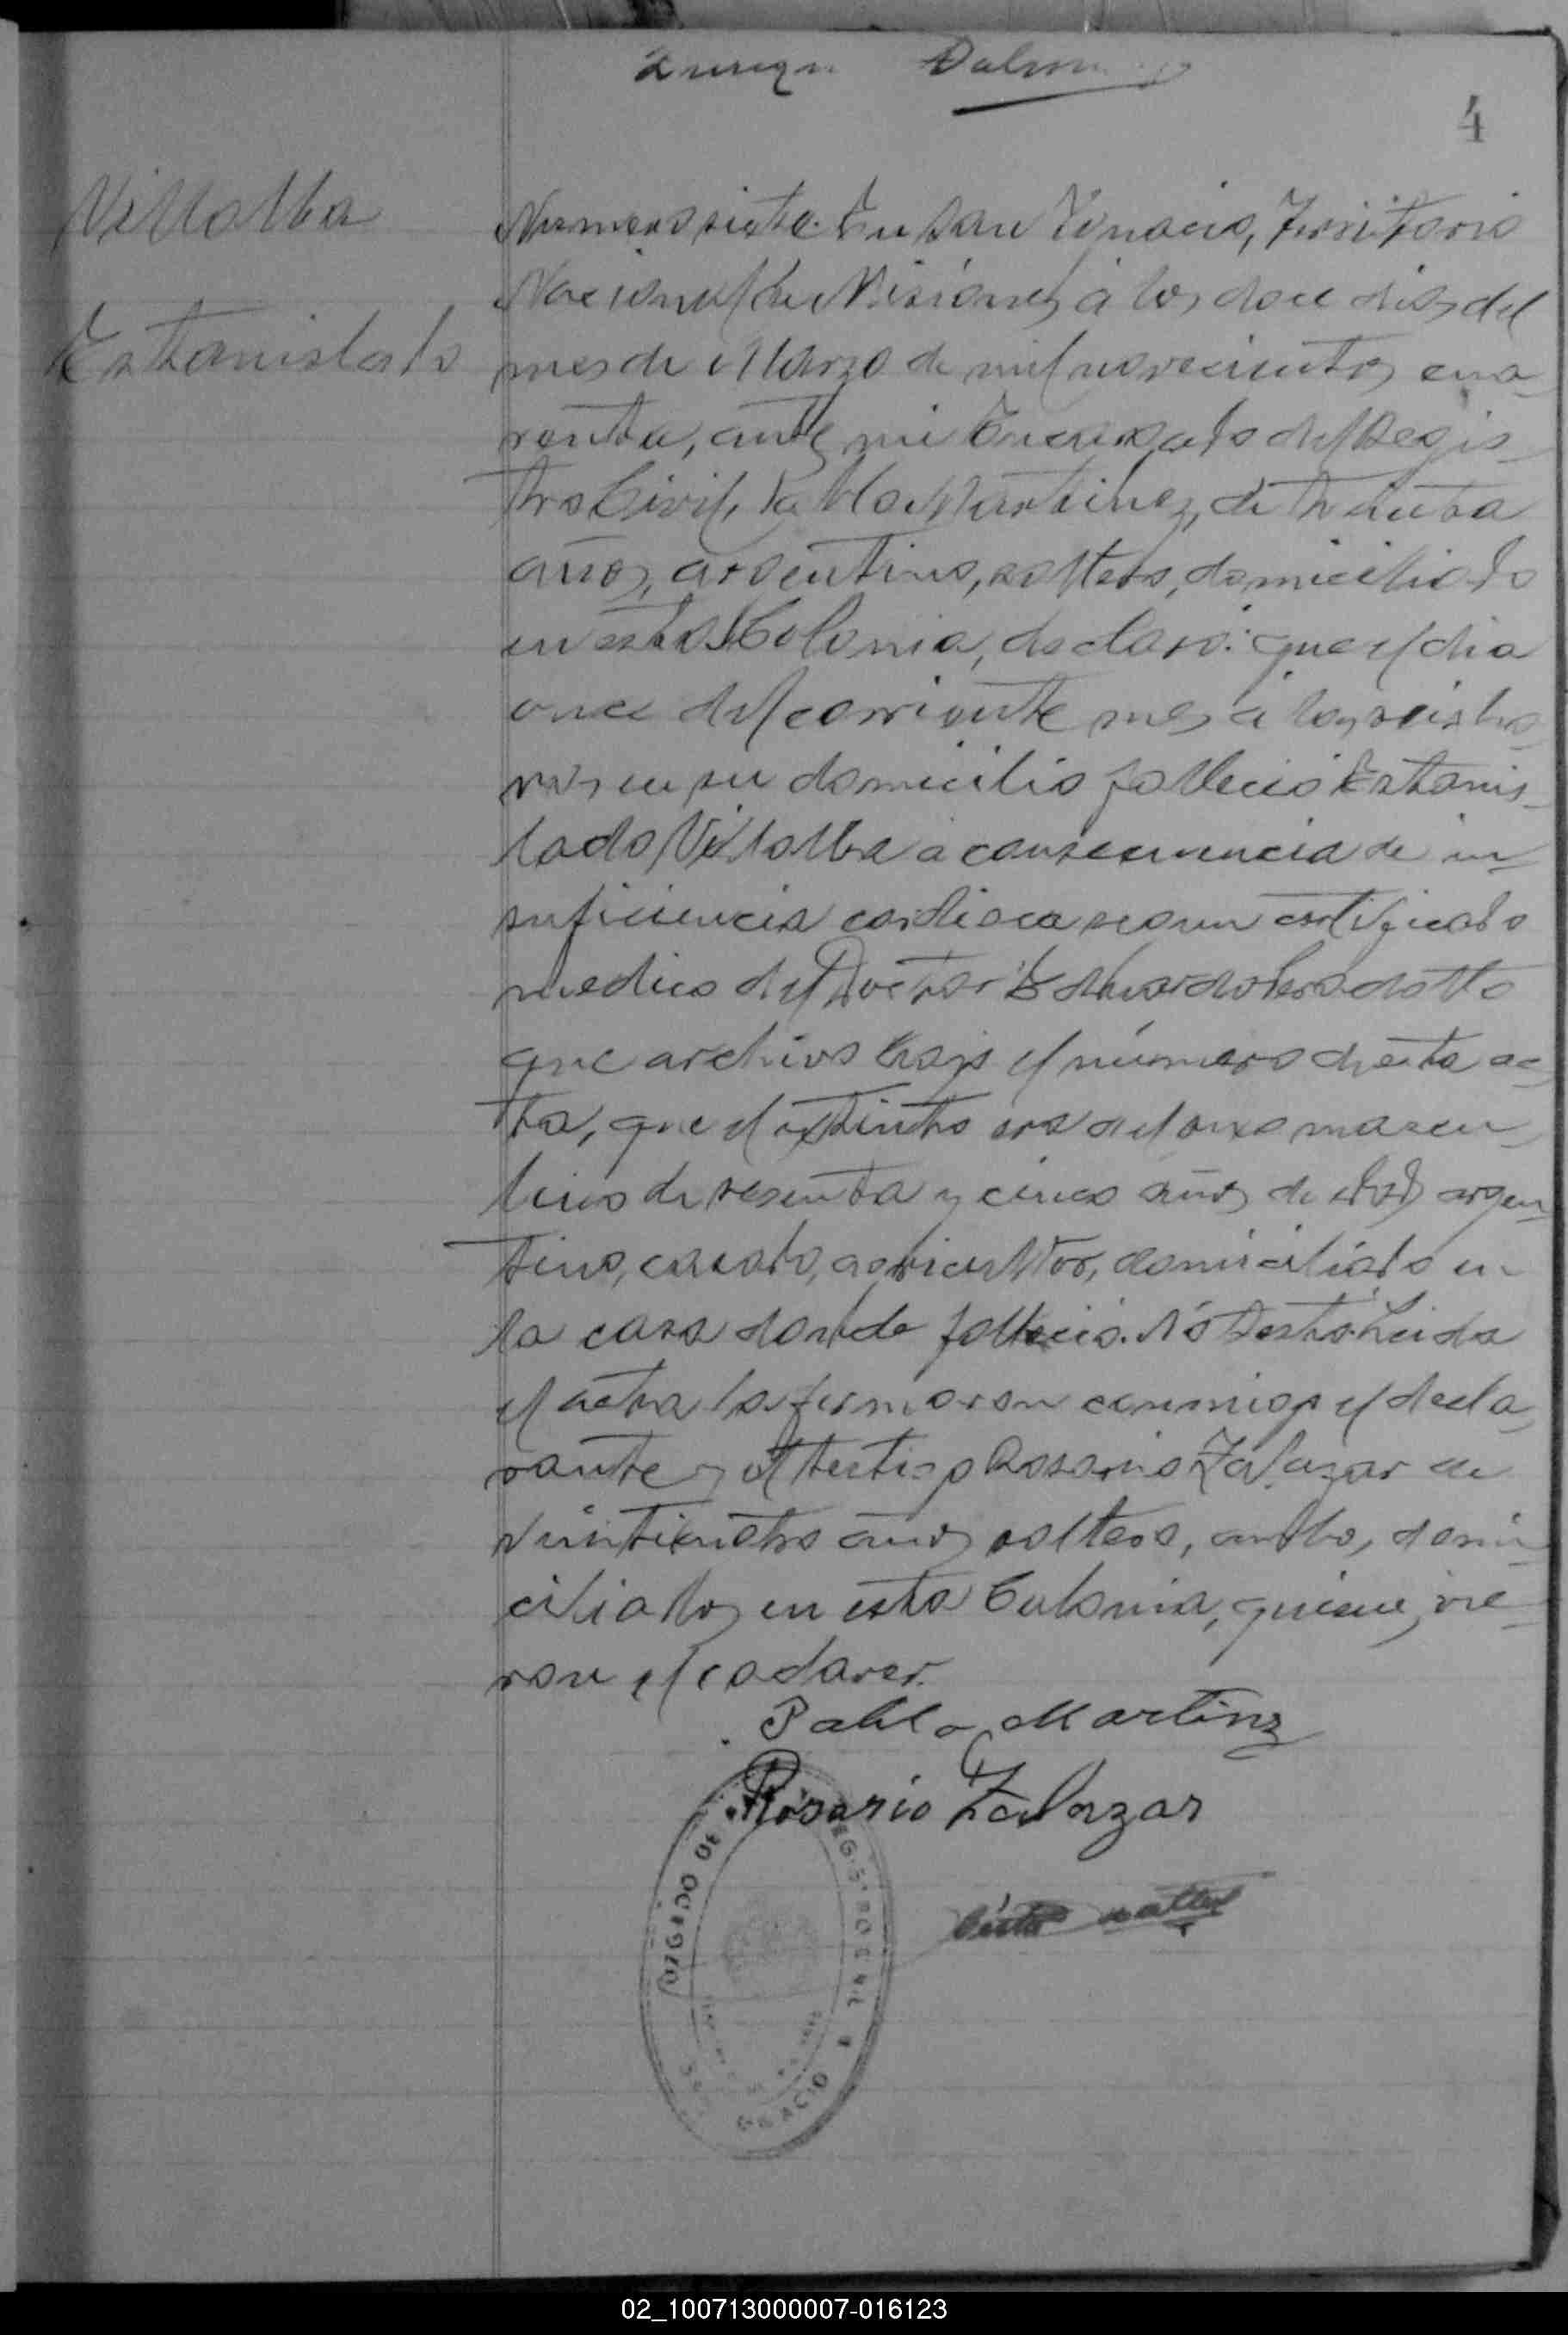 4
Villalba
Estanislado
Numero siete. En San Ignacio, Territorio
Nacional de Misiones, á los doce dias del
mes de Marzo de mil novecientos cua-
renta, ante mi Encargado del Regis-
tro Civil, Pablo Martinez, de treinta
años, argentino, soltero, domiciliado
en esta Colonia, declaró: que el dia
once del corriente mes á las seis ho-
ras en su domicilio falleció Estanis-
lado Villalba a consecuencia de in-
suficiencia cardiaca segun certificado
medico del Doctor Eduardo
que archivo bajo el número de esta ac-
ta, que el extinto era del sexo mascu-
lino de sesenta y cinco años de edad argen-
tino, casado, agricultor, domiciliado en
la casa donde falleció. Nó testó. Leida
el acta la firmaron conmigo el decla-
rante y el testigo Rosario Zalazar de
veinticuatro años soltero, ambos domi-
ciliados en esta Colonia, quienes vie-
ron el cadaver.
Pablo Martinz
Rosario Zalazar
02_100713000007-016123